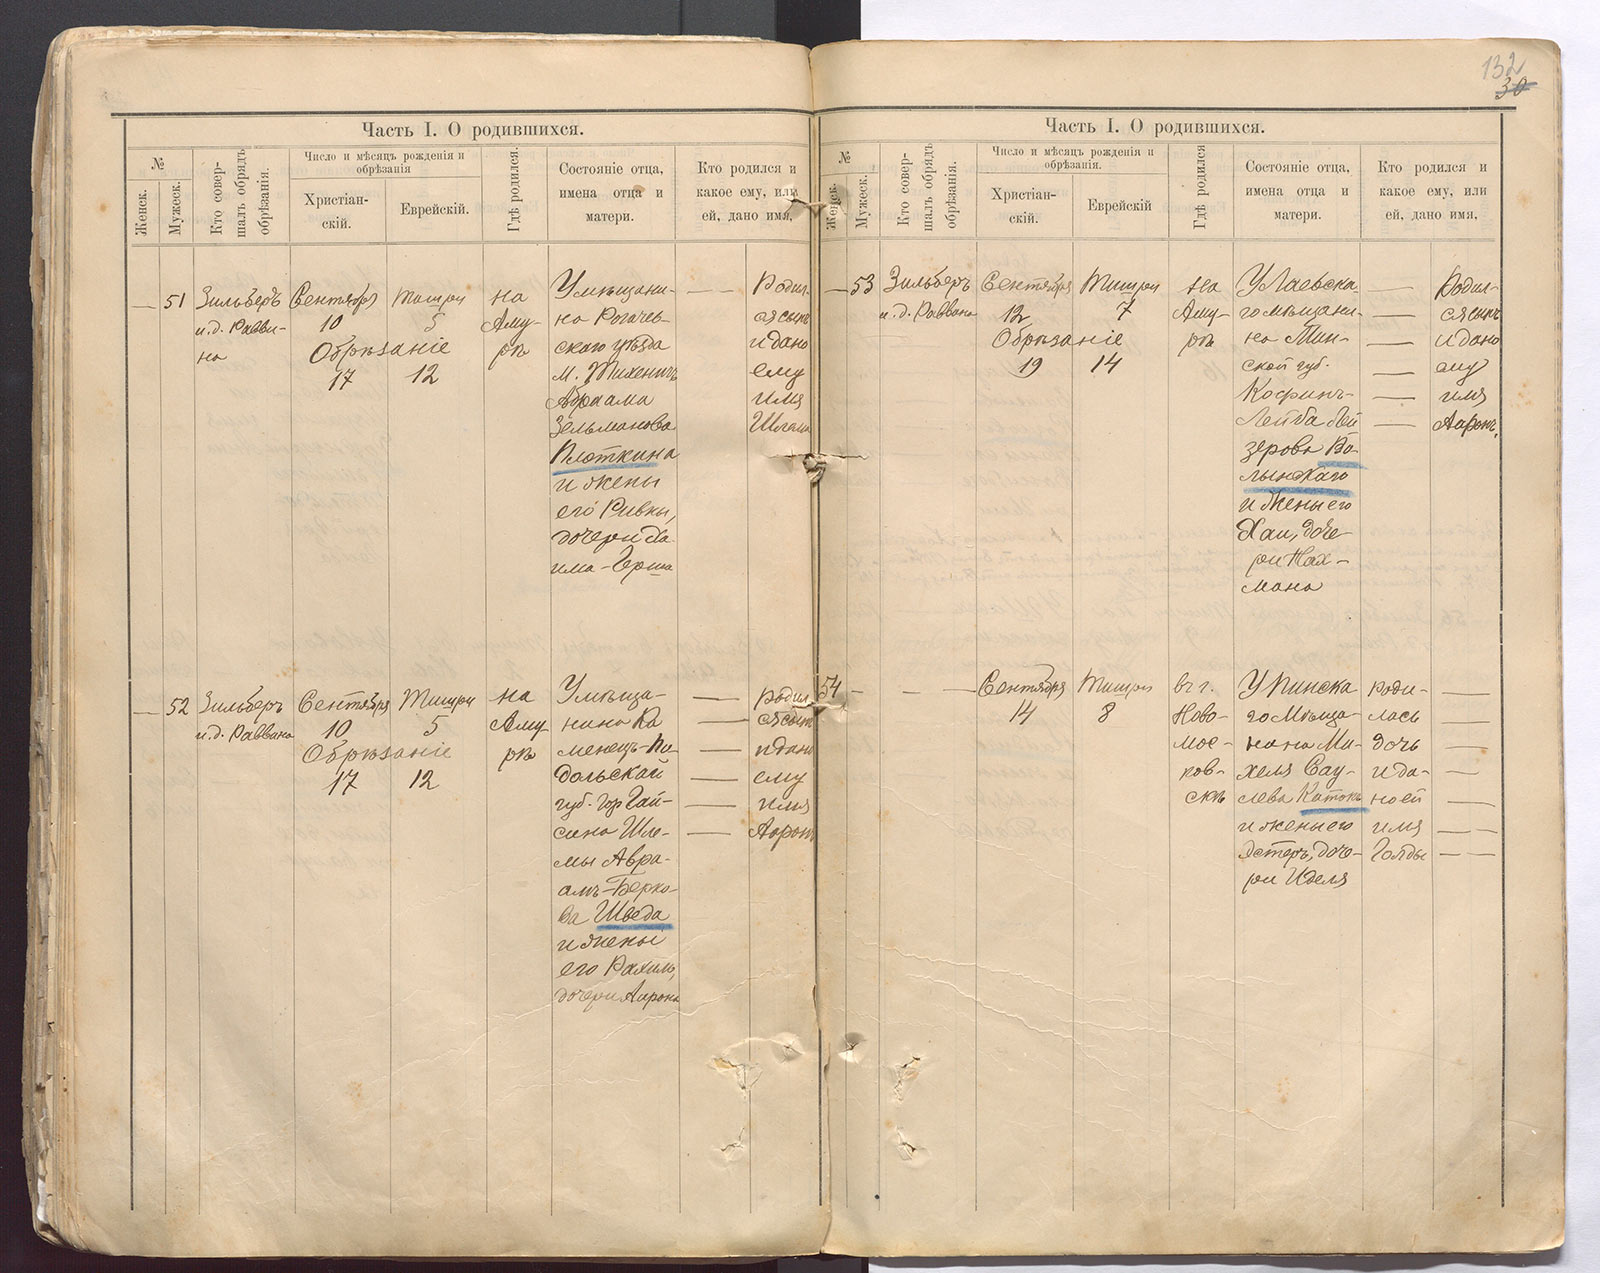 132
30
Часть I. О родившихся.
№
Женск.
Мужеск.
Кто совер-
шалъ обрядъ
обрѣзанія.
Число и мѣсяцъ рожденія и
обрѣзанія
Христіан-
скій.
Еврейскій.
Гдѣ родился.
Состояніе отца,
имена отца и
матери.
Кто родился и
какое ему, или
ей, дано имя,
— 51
Зильберъ
и.д. Равви-
на
Сентября
10
Тишри
5
Обрѣзаніе
17 12
на
Аму-
рѣ
У мѣщани-
на Рогачев-
скаго уѣзда
м. Тихеничъ
Абраама
Зельманова
Плоткина
и жены
его Ривки,
дочери
Герша
— —
Родил-
ся сынъ
и дано
ему
имя
Шлема
— 52
Зильберъ
и.д. Раввина
Сентября
10
Тишри
5
Обрѣзаніе
17 12
на
Аму
рѣ
У мѣща-
нина Ка
менецъ-По
дольской
губ. гор Гай-
сина Шле-
мы Авра-
амъ-Берко-
ва Шведа
и жены
его Рахиль,
дочери Аарона
— Родил
— ся сынъ
— и дано
— ему
— имя
— Ааронъ
Часть I. О родившихся.
№
Женск.
Мужеск.
Кто совер-
шалъ обрядъ
обрѣзанія.
Число и мѣсяцъ рожденія и
обрѣзанія
Христіан-
скій.
Еврейскій
Гдѣ родился
Состояніе отца,
имена отца и
матери.
Кто родился и
какое ему, или
ей, дано имя,
— 53
Зильберъ
и.д. Раввина
Сентября
12
Тишри
7
Обрѣзаніе
19 14
На
Аму-
рѣ
го мѣщани-
на Мин-
ской губ.
Лейба Лей
зерова Во-
лынскаго
и жены его
Хаи, доче-
ри Нах-
мана
— Родил-
— ся сынъ
— и дано
— ему
— имя
— Ааронъ.
54 —
— —
Сентября
14
Тишри
8
въ г.
Ново-
мос-
ков-
скѣ
У Пинска
го Мѣща-
нина Ми-
хеля Сау-
лева Катокъ
и жены его
Эстеръ, доче-
ри Иделя
роди- —
лась —
дочь —
и да- —
но ей —
имя — —
Голды — —